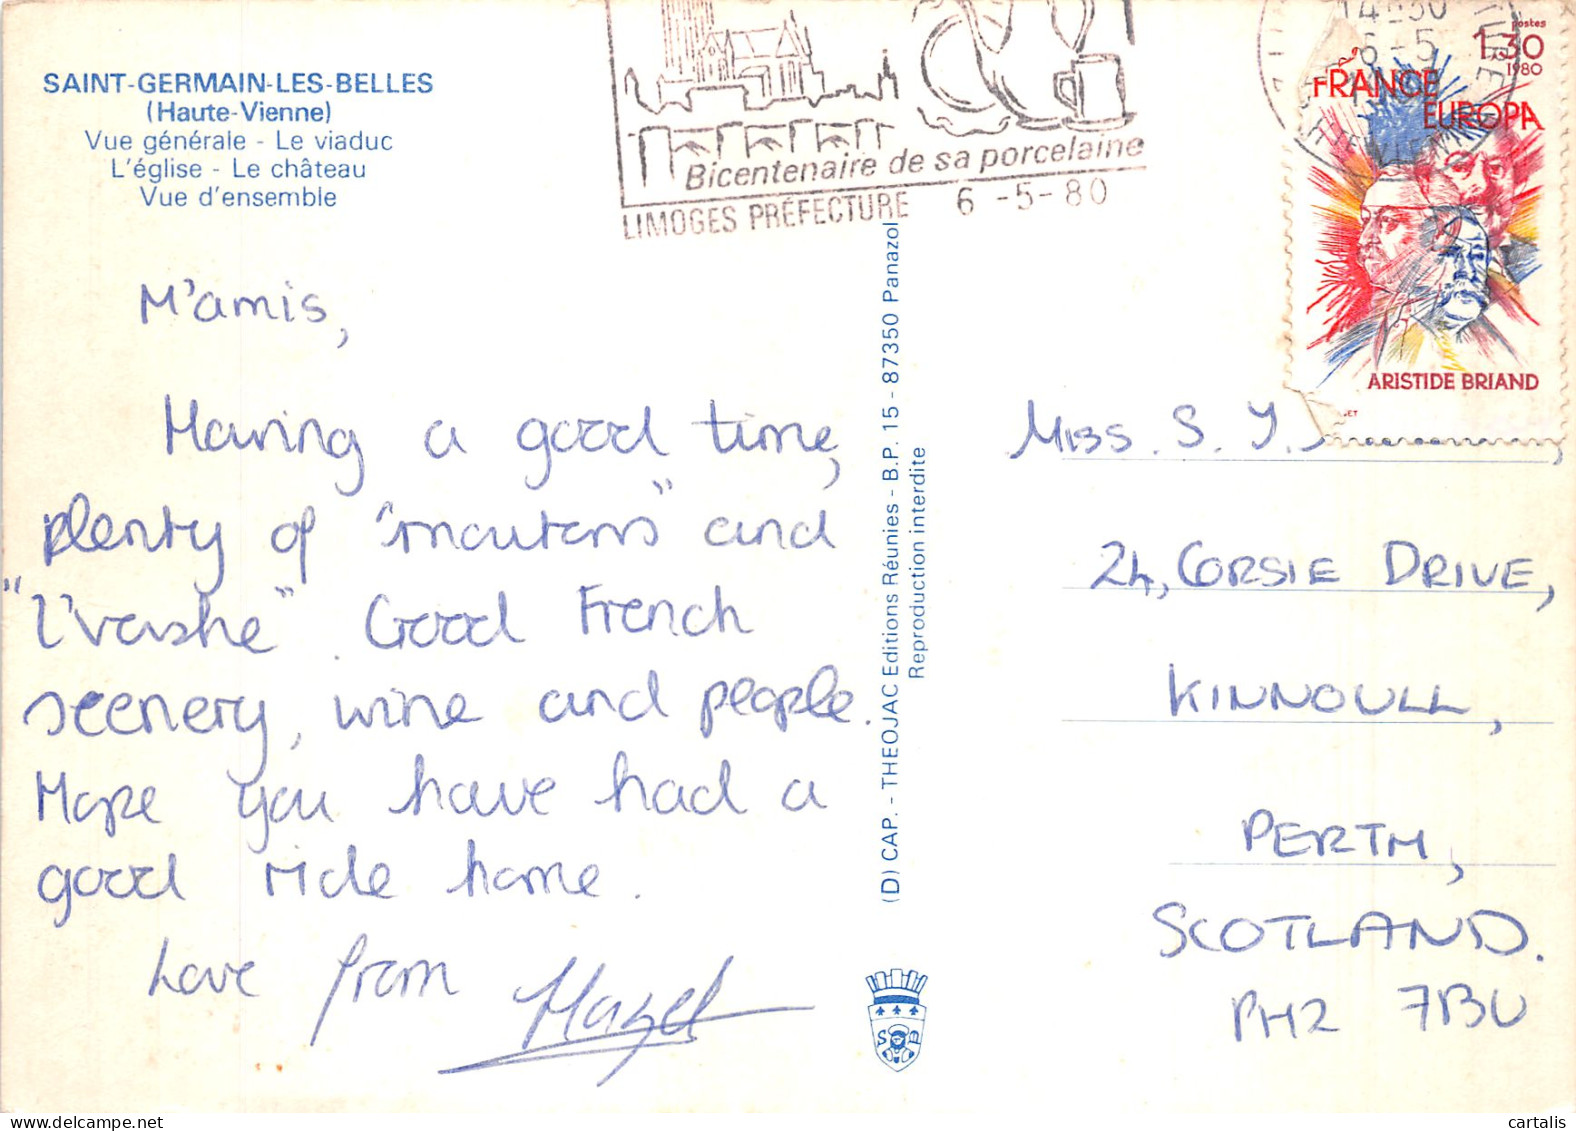 SAINT-GERMAIN-LES-BELLES
(Haute-Vienne)
Vue générale - Le viaduc
L'église - Le château
Vue d'ensemble
Bicentenaire de sa porcelaine
LIMOGES PRÉFECTURE 6 -5- 80
14 30
6-5
postes
1.30
1980
FRANCE
EUROPA
ARISTIDE BRIAND
M'amis,
Having a good time,
plenty of "moutons" and
"l'vashe". Good French
scenery, wine and people.
Hope you have had a
good ride home.
Love from Hazel
(D) CAP. - THEOJAC Editions Réunies - B.P. 15 - 87350 Panazol
Reproduction interdite
S B
Miss. S. Y.
24, CORSIE DRIVE,
KINNOULL,
PERTH,
SCOTLAND.
PH2 7BU
cartalis